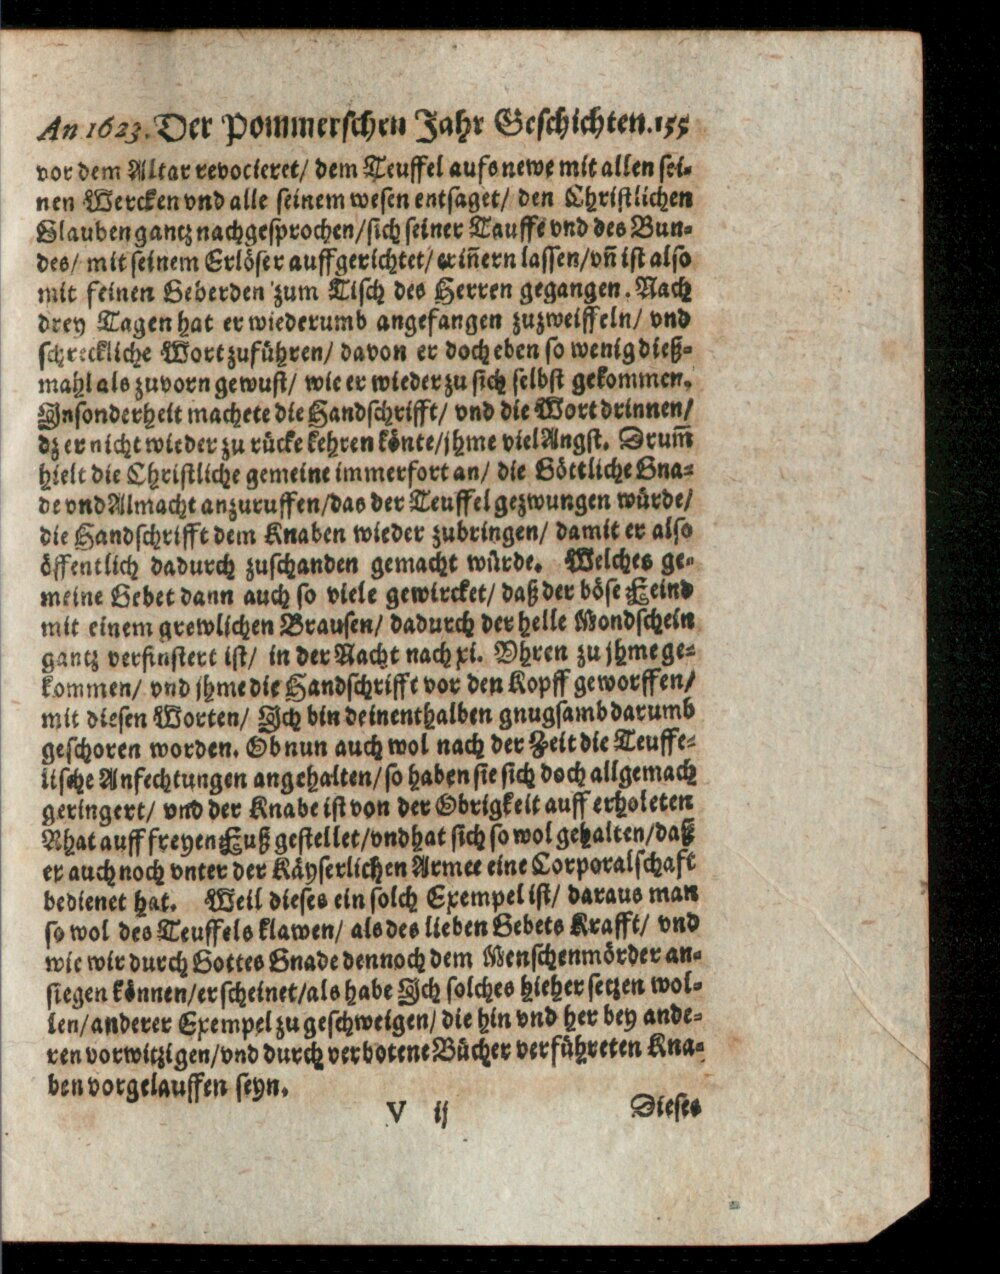 An 1623. Der Pommerschen Jahr Geschichten. 155
vor dem Altar revocieret/ dem Teuffel aufs newe mit allen sei-
nen Wercken vnd alle seinem wesen entsaget/ den Christlichen
Glauben gantz nachgesprochen/ sich seiner Tauffe vnd des Bun-
des/ mit seinem Erlöser auffgerichtet/ eriñern lassen/ vñ ist also
mit feinen Geberden zum Tisch des Herren gegangen. Nach
drey Tagen hat er wiederumb angefangen zuzweiffeln/ vnd
schreckliche Wort zuführen/ davon er doch eben so wenig dieß-
mahl als zuvorn gewust/ wie er wieder zu sich selbst gekommen.
Insonderheit machete die Handschrifft/ vnd die Wort drinnen/
dz er nicht wieder zu rücke kehren könte/ jhme viel Angst. Drum̃
hielt die Christliche gemeine immerfort an/ die Göttliche Gna-
de vnd Almacht anzuruffen/ das der Teuffel gezwungen würde/
die Handschrifft dem Knaben wieder zubringen/ damit er also
öffentlich dadurch zuschanden gemacht würde. Welches ge-
meine Gebet dann auch so viele gewircket/ daß der böse Feind
mit einem grewlichen Brausen/ dadurch der helle Mondschein
gantz verfinstert ist/ in der Nacht nach xi. Vhren zu jhme ge-
kommen/ vnd jhme die Handschrifft vor den Kopff geworffen/
mit diesen Worten/ Ich bin deinenthalben gnugsamb darumb
geschoren worden. Ob nun auch wol nach der Zeit die Teuffe-
lische Anfechtungen angehalten/ so haben sie sich doch allgemach
geringert/ vnd der Knabe ist von der Obrigkeit auff erholeten
Rhat auff freyen Fuß gestellet/ vnd hat sich so wol gehalten/ daß
er auch noch vnter der Käyserlichen Armee eine Corporalschaft
bedienet hat. Weil dieses ein solch Exempel ist/ daraus man
so wol des Teuffels klawen/ als des lieben Gebets Krafft/ vnd
wie wir durch Gottes Gnade dennoch dem Menschenmörder an-
siegen können/ erscheinet/ als habe Ich solches hieher setzen wol-
len/ anderer Exempel zu geschweigen/ die hin vnd her bey ande-
ren vorwitzigen/ vnd durch verbotene Bücher verführeten Kna-
ben vorgelauffen seyn.
V ij Dieses